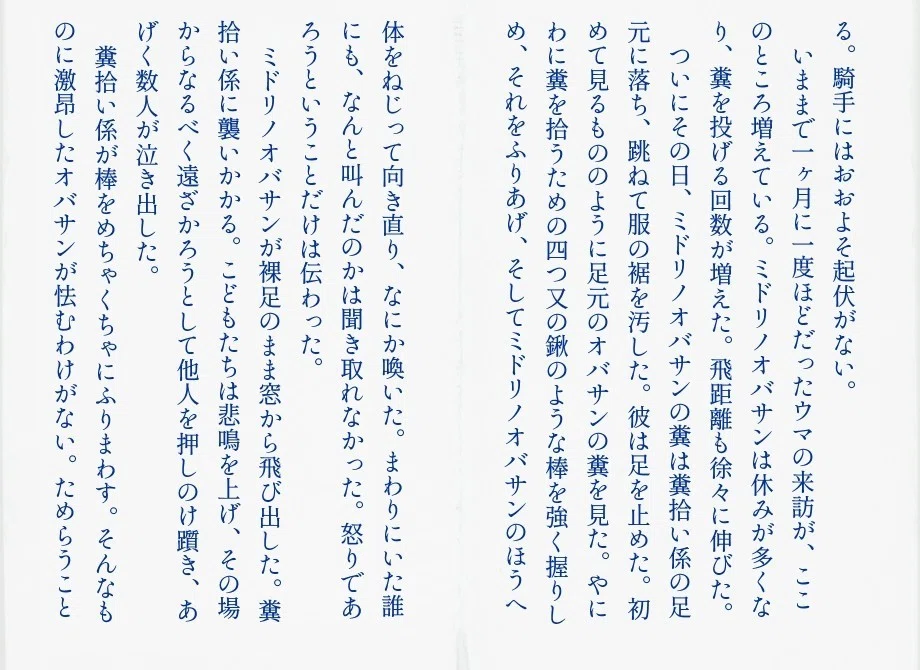 る。騎手にはおおよそ起伏がない。
いままで一ヶ月に一度ほどだったウマの来訪が、ここ
のところ増えている。ミドリノオバサンは休みが多くな
り、糞を投げる回数が増えた。飛距離も徐々に伸びた。
ついにその日、ミドリノオバサンの糞は糞拾い係の足
元に落ち、跳ねて服の裾を汚した。彼は足を止めた。初
めて見るもののように足元のオバサンの糞を見た。やに
わに糞を拾うための四つ又の鍬のような棒を強く握りし
め、それをふりあげ、そしてミドリノオバサンのほうへ
体をねじって向き直り、なにか喚いた。まわりにいた誰
にも、なんと叫んだのかは聞き取れなかった。怒りであ
ろうということだけは伝わった。
ミドリノオバサンが裸足のまま窓から飛び出した。糞
拾い係に襲いかかる。こどもたちは悲鳴を上げ、その場
からなるべく遠ざかろうとして他人を押しのけ躓き、あ
げく数人が泣き出した。
糞拾い係が棒をめちゃくちゃにふりまわす。そんなも
のに激昂したオバサンが怯むわけがない。ためらうこと